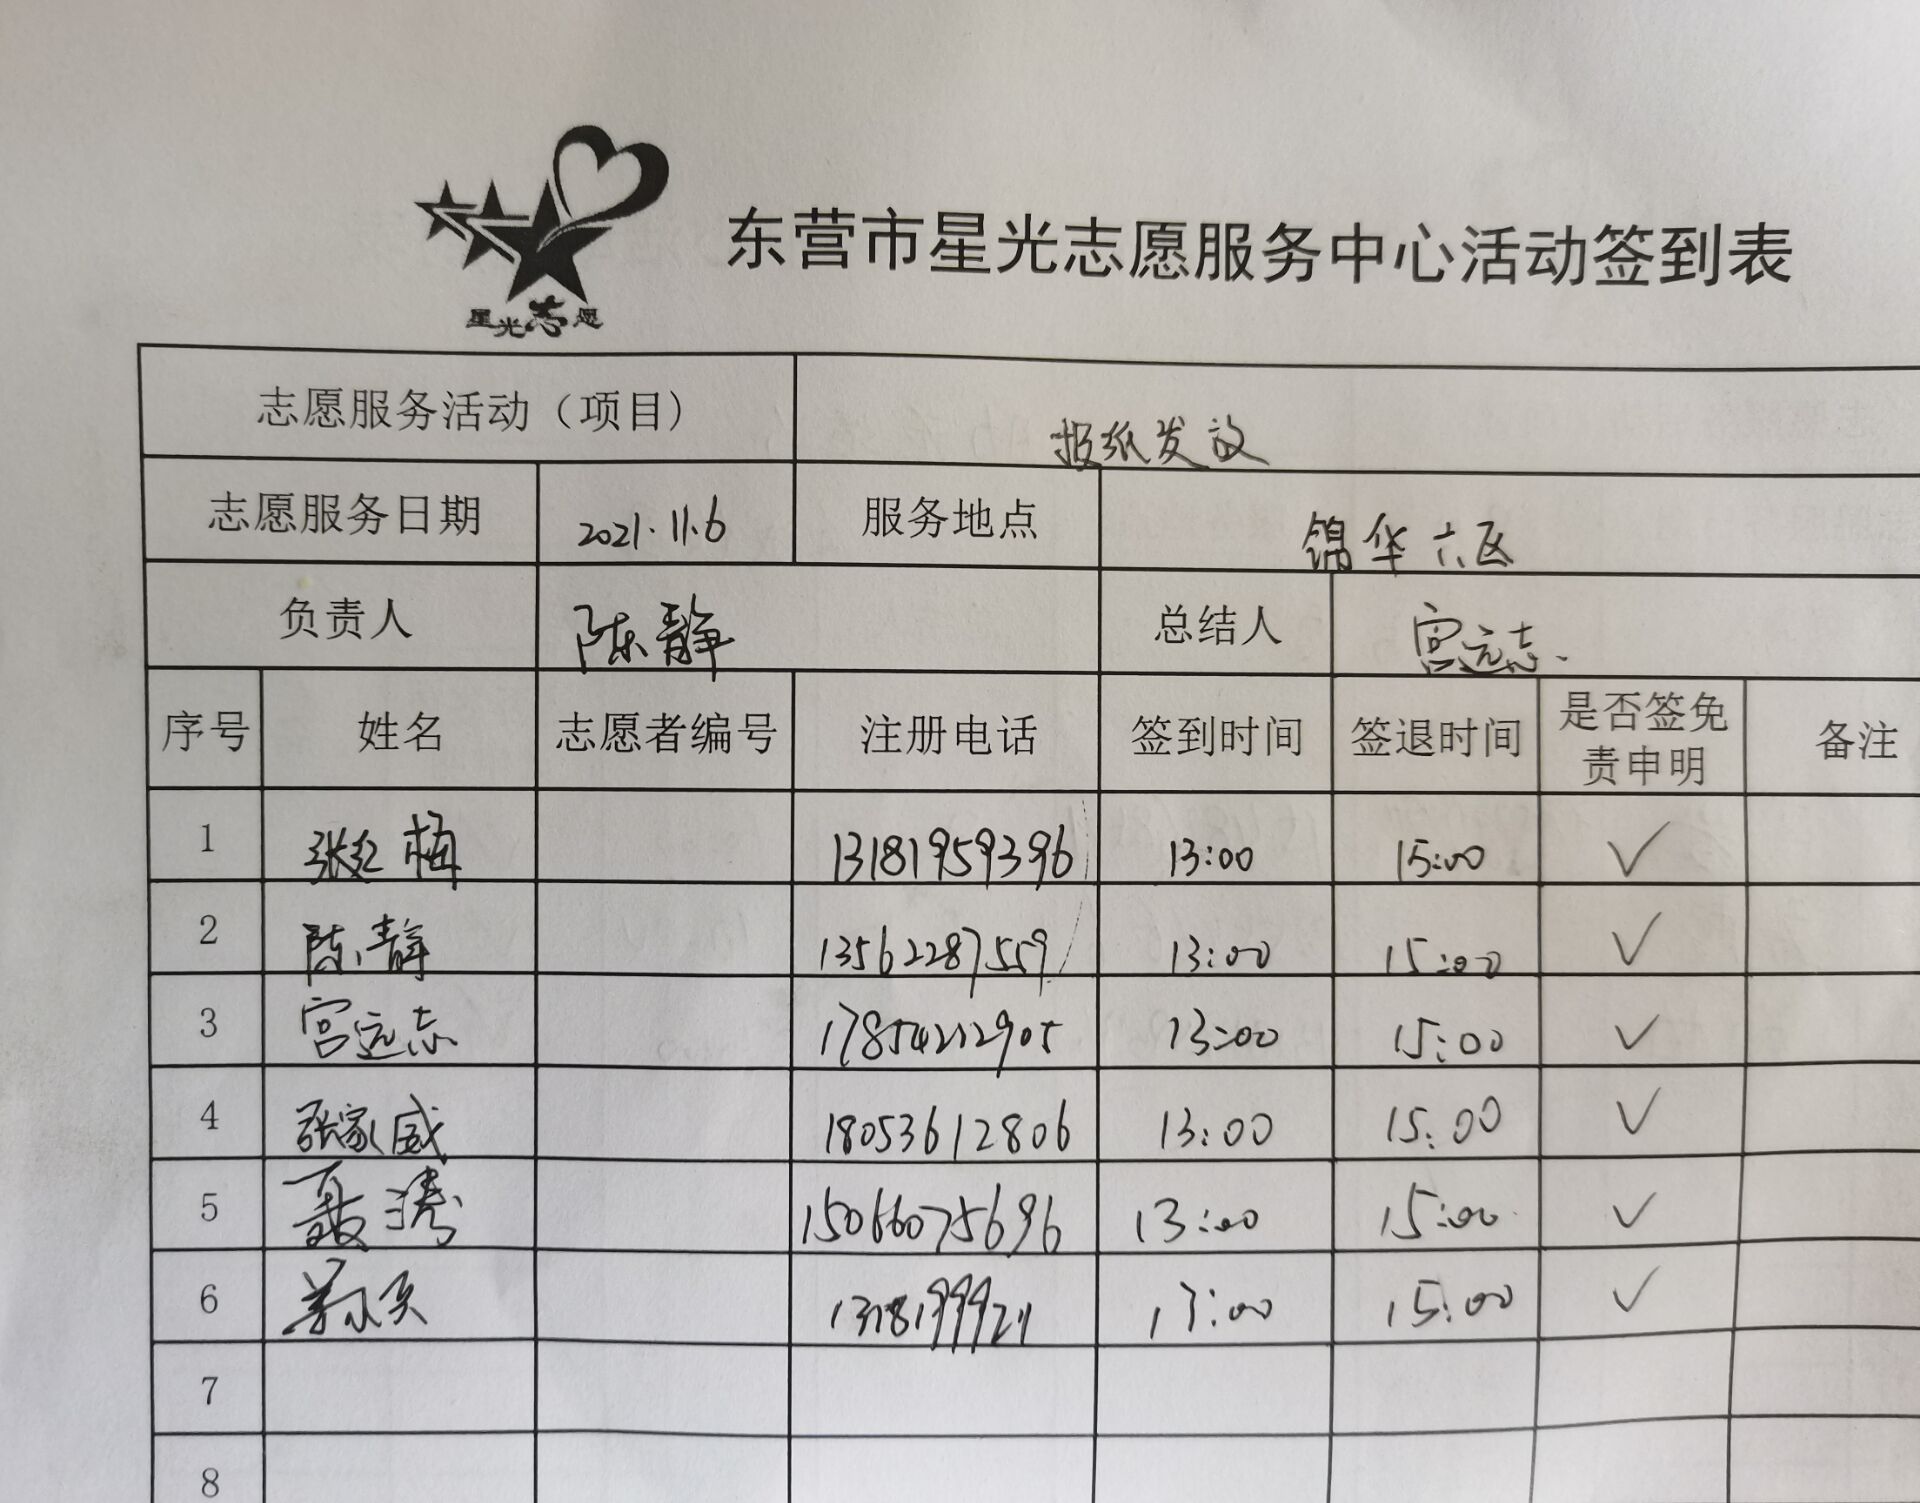 星光志愿
东营市星光志愿服务中心活动签到表
志愿服务活动（项目） 报纸发放
志愿服务日期 2021.11.6 服务地点 锦华六区
负责人 陈静 总结人 宫远志.
序号 姓名 志愿者编号 注册电话 签到时间 签退时间 是否签免责申明 备注
1 张红梅 13181959396 13:00 15:00 ✓
2 陈静 13562287559 13:00 15:00 ✓
3 宫远志 17854212905 13:00 15:00 ✓
4 张家威 18053612806 13:00 15:00 ✓
5 聂涛 15066075696 13:00 15:00 ✓
6 13181999211 13:00 15:00 ✓
7
8